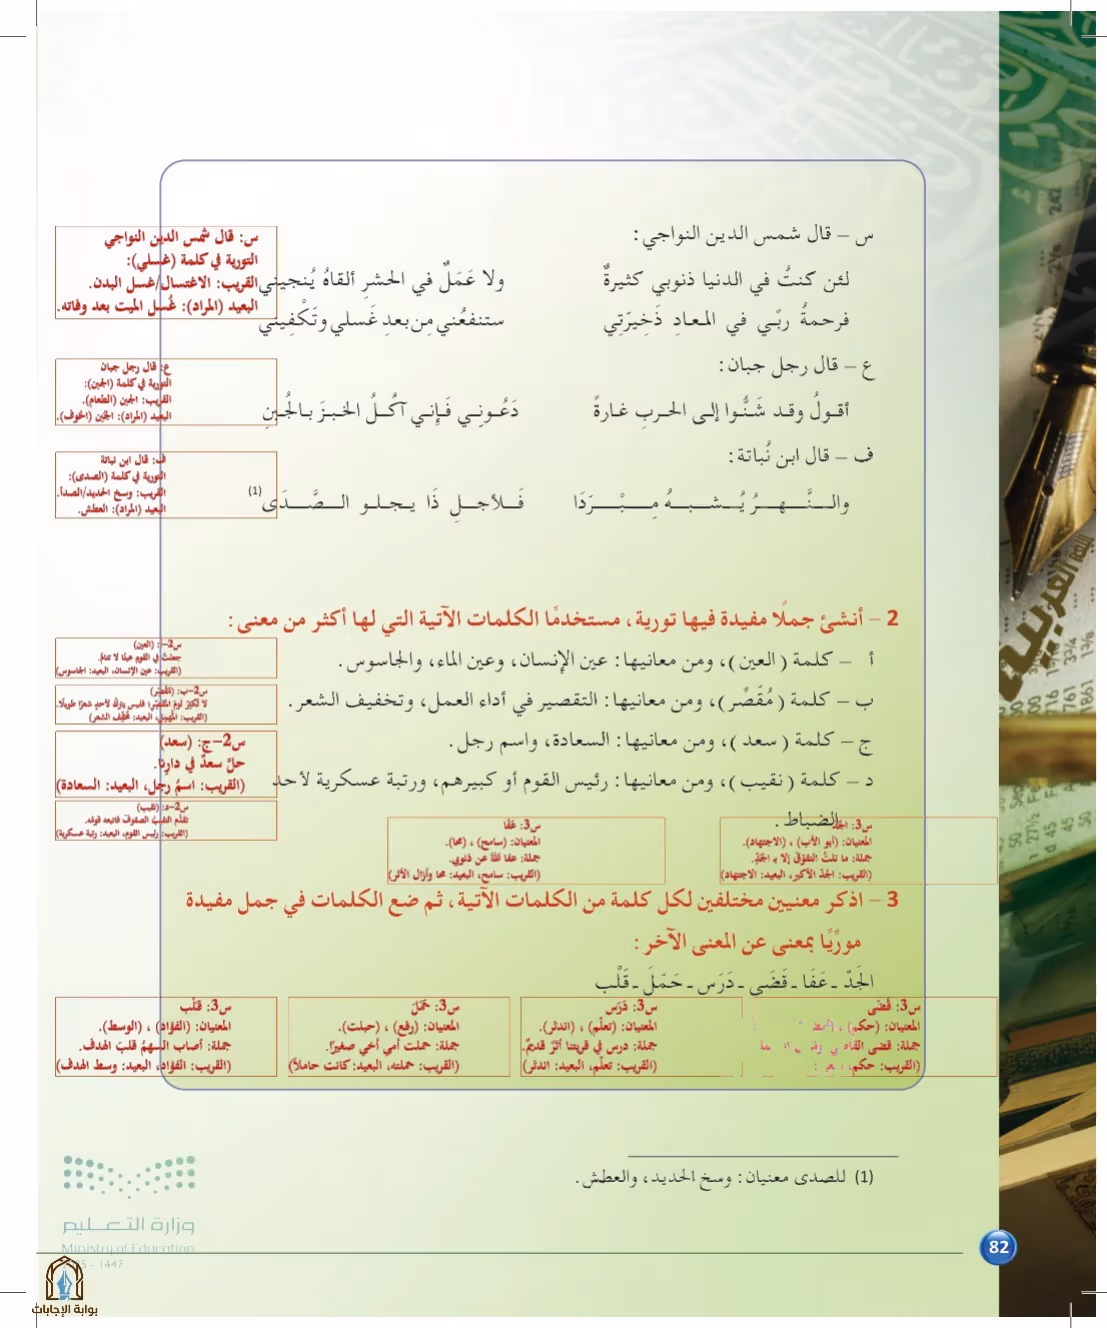 س – قال شمس الدين النواجي:
لئن كنتُ في الدنيا ذنوبي كثيرةٌ ولا عَمَلٌ في الحشرِ ألقاهُ يُنجيني
فرحمةُ ربّي في المعادِ ذَخِيرَتِي ستنفعُني مِن بعدِ غَسلي وتَكْفِيني
س: قال شمس الدين النواجي
التورية في كلمة (غسلي):
القريب: الاغتسال/غسل البدن.
البعيد (المراد): غُسل الميت بعد وفاته.
ع – قال رجل جبان:
أقولُ وقد شَنُّوا إلى الحربِ غارةً دَعُوني فَإِني آكُلُ الخبزَ بالجُبنِ
ع: قال رجل جبان
التورية في كلمة (الجبن):
القريب: الجبن (الطعام).
البعيد (المراد): الجُبن (الخوف).
ف – قال ابن نُباتة:
والنَّهرُ يُشبهُ مِبْرَدَا فَلأجلِ ذَا يجلو الصَّدَى (1)
ف: قال ابن نباتة
التورية في كلمة (الصدى):
القريب: وسخ الحديد/الصدأ.
البعيد (المراد): العطش.
2 – أنشئ جملًا مفيدة فيها تورية، مستخدمًا الكلمات الآتية التي لها أكثر من معنى:
أ – كلمة (العين)، ومن معانيها: عين الإنسان، وعين الماء، والجاسوس.
س2-أ: (العين)
جعلتُ في القوم عينًا لا تنامُ.
(القريب: عين الإنسان، البعيد: الجاسوس)
ب – كلمة (مُقَصِّر)، ومن معانيها: التقصير في أداء العمل، وتخفيف الشعر.
س2-ب: (مُقصِّر)
لا تُكثِرْ لومَ المُقصِّرِ؛ فليس يتركُ لأحدٍ شعرًا طويلًا.
(القريب: المهمِل، البعيد: مُخفِّف الشعر)
ج – كلمة (سعد)، ومن معانيها: السعادة، واسم رجل.
س2-ج: (سعد)
حلَّ سعدٌ في دارِنا.
(القريب: اسمُ رجل، البعيد: السعادة)
د – كلمة (نقيب)، ومن معانيها: رئيس القوم أو كبيرهم، ورتبة عسكرية لأحد
الضباط.
س2-د: (نقيب)
تقدَّم النقيبُ الصفوفَ فاتبعه قومُه.
(القريب: رئيس القوم، البعيد: رتبة عسكرية)
س3: الجَدّ
المعنيان: (أبو الأب) ، (الاجتهاد).
جملة: ما نلتُ التفوّقَ إلا بـ الجَدِّ.
(القريب: الجدّ الأكبر، البعيد: الاجتهاد)
س3: عَفَا
المعنيان: (سامح) ، (محا).
جملة: عفا اللهُ عن ذنوبي.
(القريب: سامح، البعيد: محا وأزال الأثر)
3 – اذكر معنيين مختلفين لكل كلمة من الكلمات الآتية، ثم ضع الكلمات في جمل مفيدة
مورِّيًا بمعنى عن المعنى الآخر:
الجَدّ ـ عَفَا ـ قَضَى ـ دَرَس ـ حَمَلَ ـ قَلْب
س3: قَضَى
المعنيان: (حكم) ،
جملة: قضى القاضي
(القريب: حكم،
س3: دَرَس
المعنيان: (تعلّم) ، (اندثر).
جملة: درس في قريتنا أثرٌ قديمٌ.
(القريب: تعلّم، البعيد: اندثر)
س3: حَمَلَ
المعنيان: (رفع) ، (حبلت).
جملة: حملت أمي أخي صغيرًا.
(القريب: حملته، البعيد: كانت حاملاً)
س3: قَلْب
المعنيان: (الفؤاد) ، (الوسط).
جملة: أصاب السهمُ قلبَ الهدف.
(القريب: الفؤاد، البعيد: وسط الهدف)
(1) للصدى معنيان: وسخ الحديد، والعطش.
وزارة التعليم
Ministry of Education
- 1447
82
بوابة الإجابات
اللغة العربية